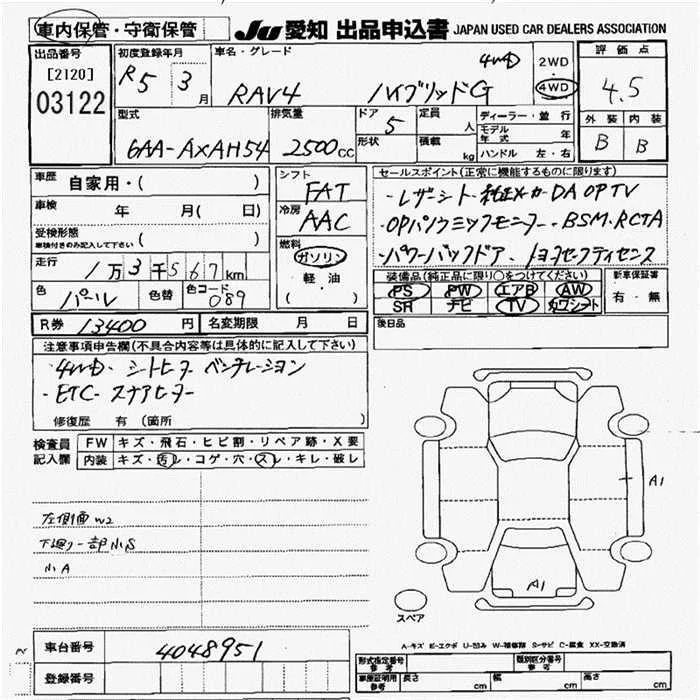 車内保管・守衛保管
JU 愛知 出品申込書 JAPAN USED CAR DEALERS ASSOCIATION
出品番号
[2120]
03122
初度登録年月
R5 3月
車名・グレード
RAV4 ハイブリッドG
4WD
2WD
4WD
評価点
4.5
外装 内装
B B
型式
6AA-AXAH54
排気量
2500cc
ドア
5
形状
定員
人
積載
kg
ディーラー・並行
モデル年式 年
ハンドル 左・右
車歴 自家用・( )
車検 年 月( 日)
受検形態
車検付きのみ記入して下さい ( )
走行 1万3千567km
色 パール 色替 色コード 089
シフト
FAT
冷房
AAC
燃料
ガソリン
・
軽・油
( )
セールスポイント(正常に機能するものに限ります)
・レザーシート・純正メーカーDA OPTV
・OPパノラミックモニター・BSM・RCTA
・パワーバックドア、トヨタセーフティセンス
装備品(純正品に限り○をつけてください)
PS PW エアB AW
SR ナビ TV カワシート
新車保証書
有・無
R券 13400円 名変期限 月 日
後日品
注意事項申告欄(不具合内容等は具体的に記入して下さい)
・4WD・シートヒーター ベンチレーション
・ETC・ステアヒーター
修復歴 有(箇所 )
検査員記入欄
FW キズ・飛石・ヒビ割・リペア跡・X要
内装 キズ・汚レ・コゲ・穴・スレ・キレ・破レ
左側面W2
下廻り一部小S
小A
A1
A1
スペア
A-キズ E-エクボ U-凹み W-補修跡 S-サビ C-腐食 XX-交換済
車台番号 4048951
登録番号
形式指定番号 参考
類別区分番号 参考
車庫証明用 参考
長さ cm 幅 cm 高さ cm